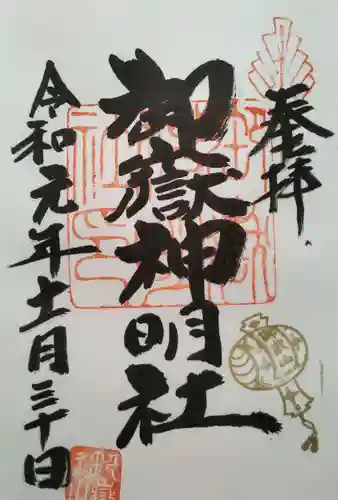 奉拝
御嶽神明社
令和元年十一月三十日